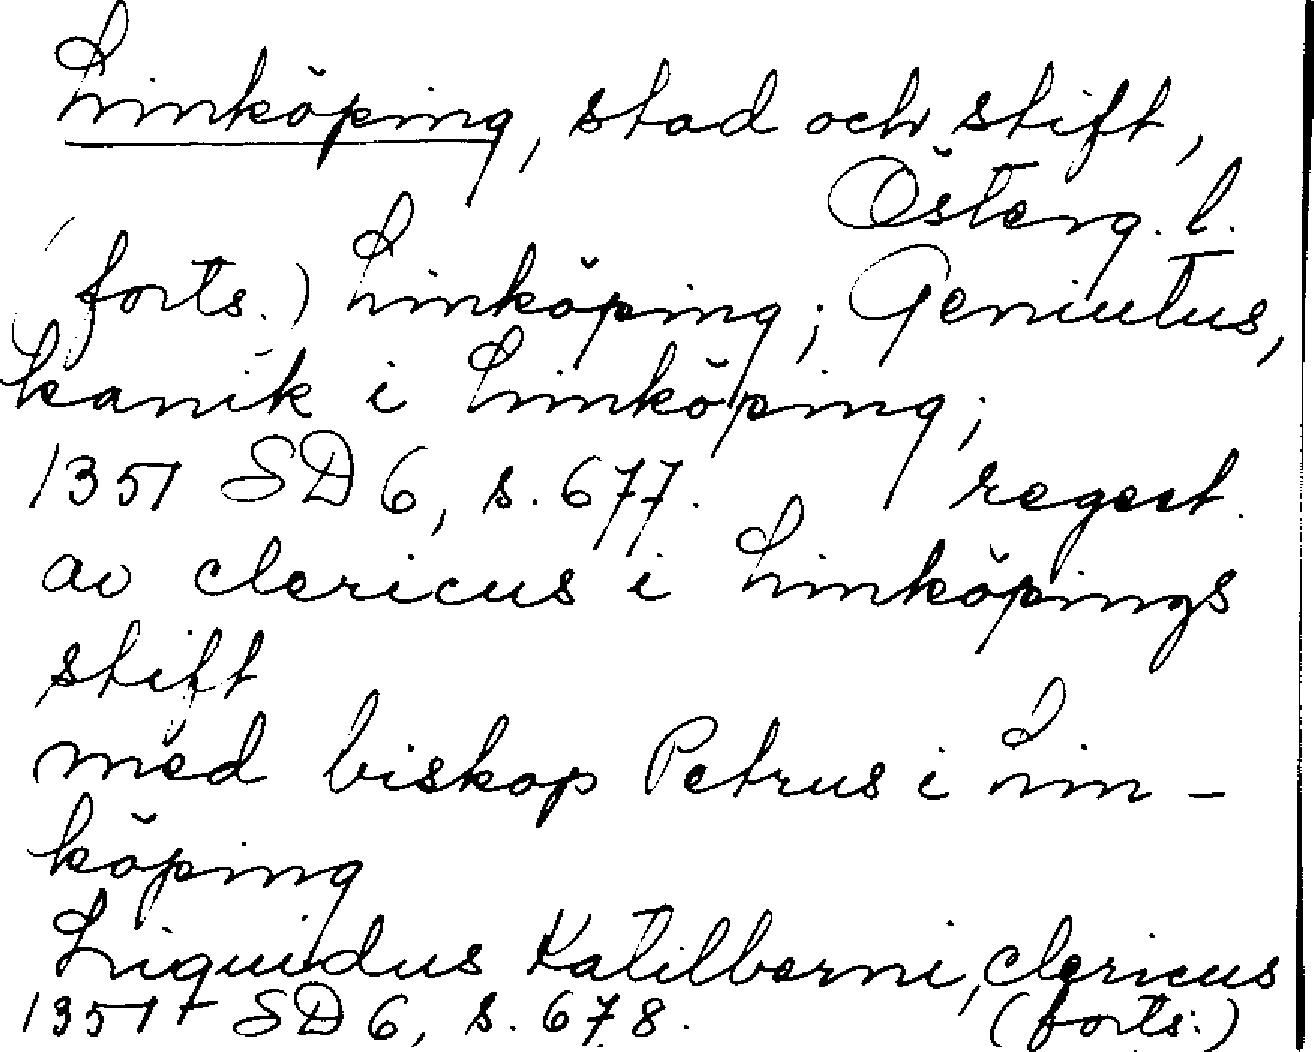 Linköping, stad och stift,
Österg. l.
(forts.) Linköping; Geniutus,
kanik i Linköping;
1351 SD 6, s. 677. regest.
av clericus i Linköpings
stift
med biskop Petrus i Lin-
köping
Liquidus Katilberni, clericus
1351 SD 6, s. 678. (forts.)